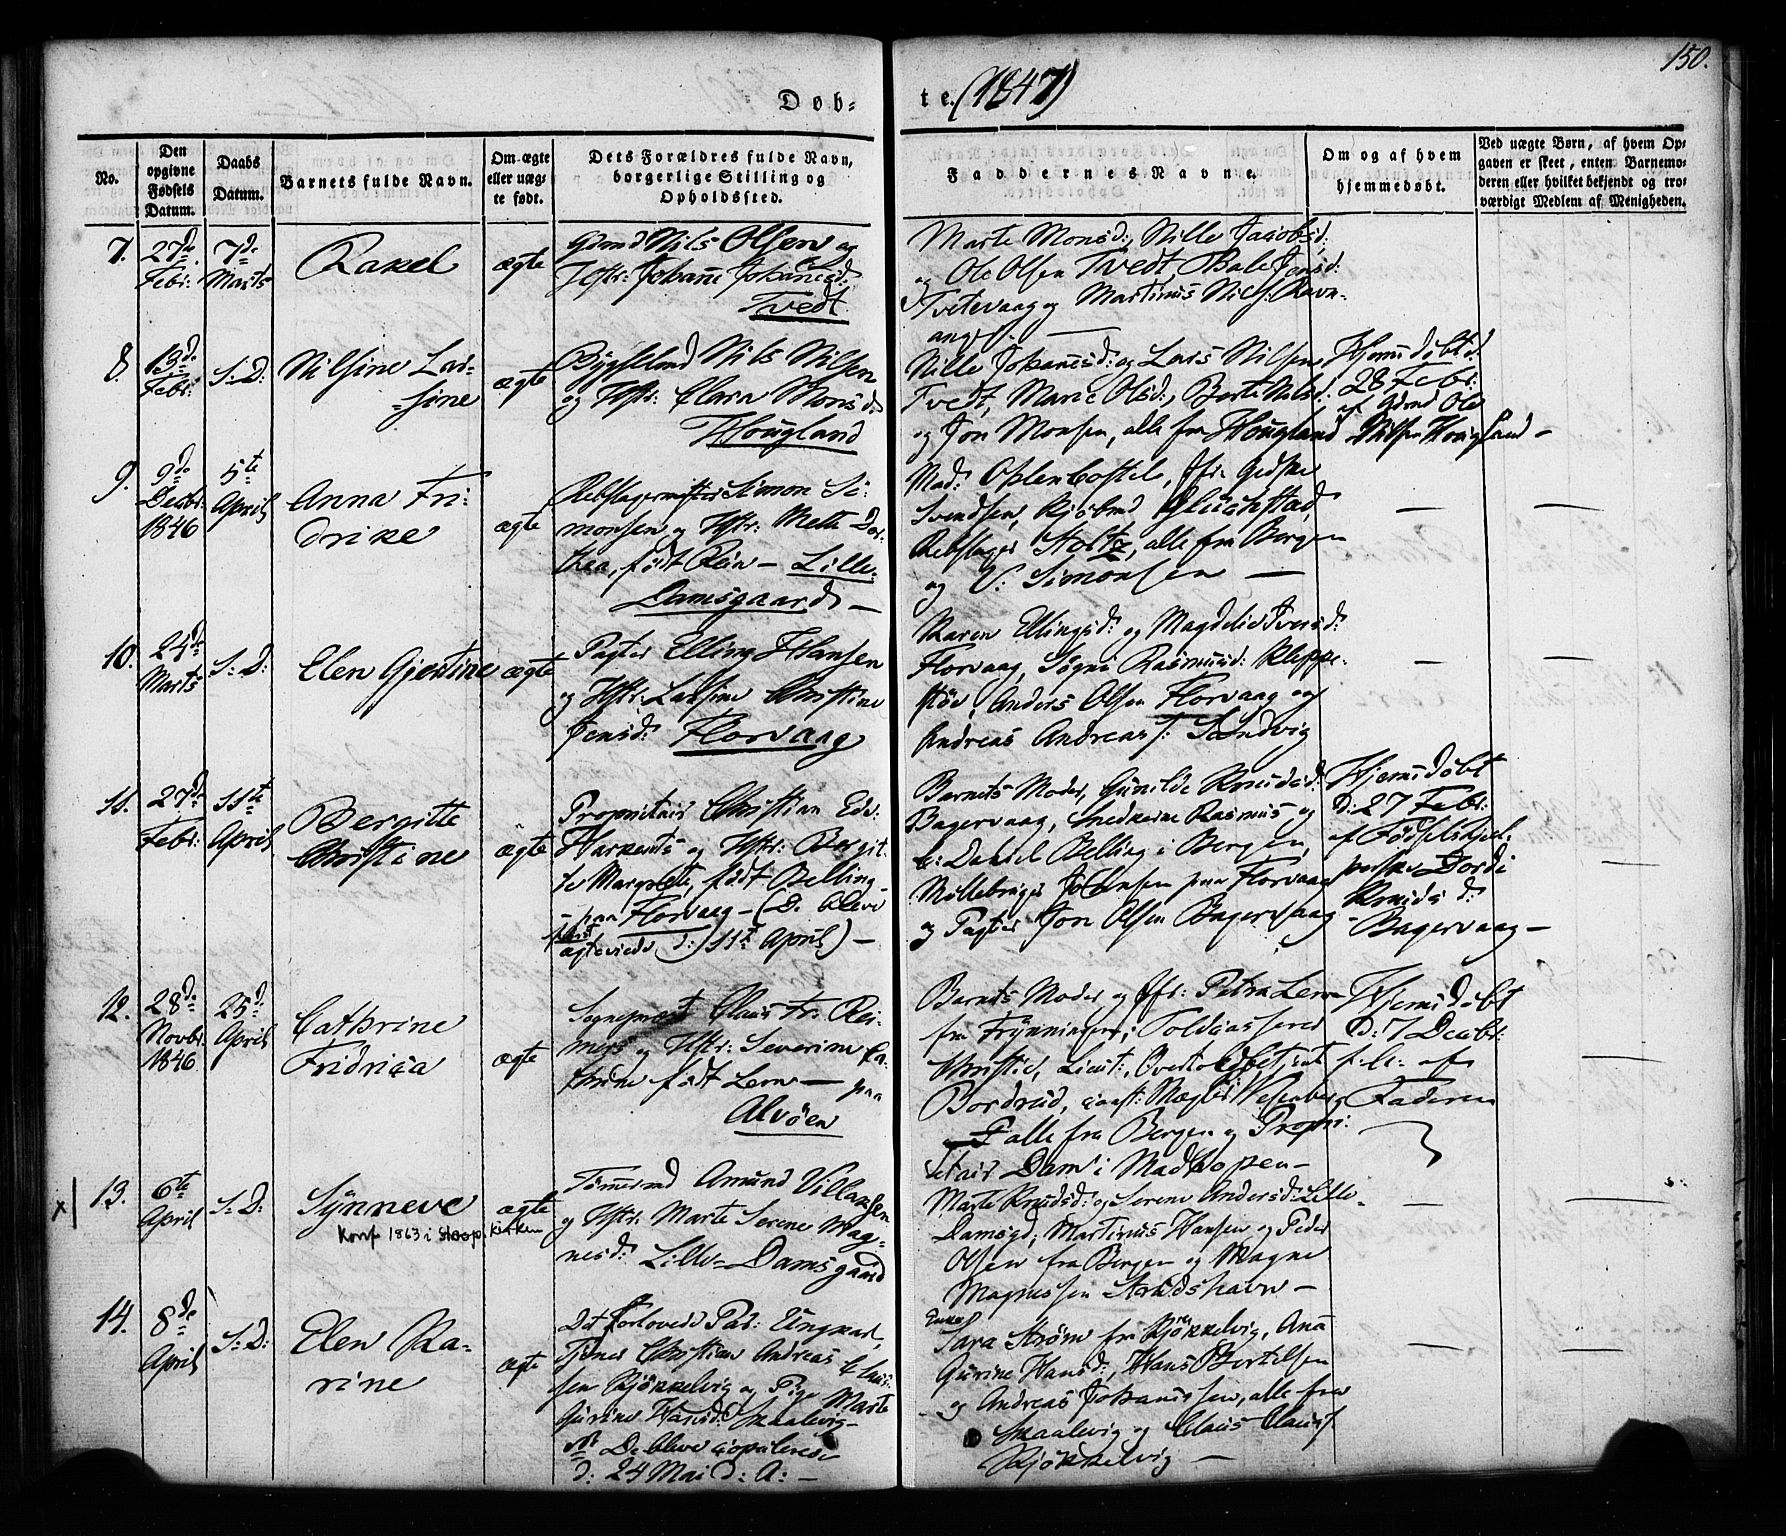 150.
Døb-
te. (1847)
No.
Den
opgivne
Fødsels
Datum.
Daabs
Datum.
Barnets fulde Navn.
Om ægte
eller uæg-
te født.
Dets Forældres fulde Navn,
borgerlige Stilling og
Opholdssted.
Faddernes Navne.
Om og af hvem
hjemmedøbt.
Ved uægte Børn, af hvem Op-
gaven er skeet, enten Barnemo-
deren eller hvilket bekjendt og tro-
værdigt Medlem af Menigheden.
7.
27de
Febr:
7de
Marts
Rakel
ægte
Gbmd Nils Olsen og
Hstr: Johanne Johannesd:
Tvedt
Marte Monsd:, Nille Jacobsd:
og Ole Olsen Tvedt, Jensd:
Tvetevaag og Martinus Nils: Ravn-
anger.
8.
13de
Febr:
S: D:
Nilsine Lar-
sine
ægte
Bygselmd Nils Nilsen
og Hstr: Clara Monsd:
Hougland
Nille Johannesd: og Lars Nilsen
Tvedt, Marie Olsd:, Berte Nilsd:
og Jon Monsen, alle fra Hougland
Hjemmedøbt d:
28 Febr:
af Gbmd Ole
Nilsen Hougland -
9.
9de
Decbr:
1846
5te
April
Anna Fri-
drike
ægte
Rebslagermester Simon Si-
monsen og Hstr: Mette Dor-
thea, født Rein - Lille-
Damsgaard -
Mad: Oplenbostele, Jfr: Gedske
Svendsen, Kjøbmd Gluckstad,
Rebslager Stoltz, alle fra Bergen
og V: Simonsen -
10.
24de
Marts
S: D:
Elen Gjertine
ægte
Pagter Elling Hansen
og Hstr: Larsine Christine
Jensd: Florvaag
Karen Ellingsd: og Magdelie Iversd:
Florvaag, Søgni Rasmusd: Kleppe-
støe, Anders Olsen Florvaag og
Andreas Andreas: Sandvig
11.
27de
Febr:
11te
April
Bergitte
Christine
ægte
Proprietair Christian Edv:
Harkents og Hstr: Bergit-
te Margrete, født Belling
- paa Florvaag - (De bleve
først
ægteviede d: 11te April) -
Barnets Moder, Gunilde Knudsd:
Bagervaag, Snedkerne Rasmus og
Daniel Belling i Bergen,
Møllebruger Johnsen paa Florvaag
og Pagter Jon Olsen Bagervaag
Hjemmedøbt
d: 27 Febr:
af Fødselshjel-
persken Dordi
Knudsd:
- Bagervaag -
12.
28de
Novbr:
1846
25de
April
Cathrine
Fridrica
ægte
Sognepræst Claus Fr: Rei-
mers og Hstr: Severine Ca-
thrine født Lern - paa
Alvøen
Barnets Moder og Jfr: Petra Lern
fra Frynningen, Toldcasserer
Christie, Lieut:
Bordrud, const: Mægler Wesenberg
alle fra Bergen og Propri-
tetair Dam i Madhopen -
Hjemmedøbt
d: 7 Decbr:
f: A: af
Faderen
x
13.
6te
April
S: D:
Synneve
Konf 1863 i Skoop. kirken
ægte
Tømmermd Amund Villansen
og Hstr: Marte Serene Mag-
nesd: Lille-Damsgaard
Marte Knudsd: og Serene Andersd: Lille-
Damsgd; Martinus Hansen og Peder
Olsen fra Bergen og Magne
Magnessen Strudshavn -
14.
8de
April
S: D:
Elen Ka-
rine
ægte
Det forlovede Par: Ungkarl,
Tjener Christian Andreas Claus-
sen Kjøkkelvig og Pige Marte
Gurine Hansd: Skaalevig -
NB De bleve copulerede
d: 24 Mai d: A: -
Enke
Sara Strøm fra Kjøkkelvig, Ana
Gurine Hansd:, Hans Bertelsen
og Andreas Johannessen, alle fra
Skaalevig og Claus Clauss:
Kjøkkelvig -